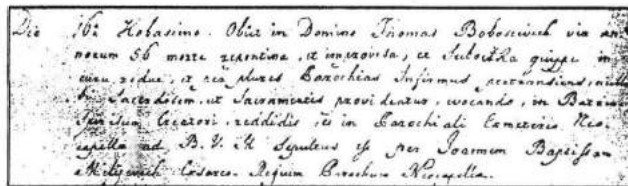 Die 16ta Hobasimo. Obiit in Domino Thomas Boboseivich vir an-
norum 56 morte repentina, et improvisa, ex Subotska quippe in
curru redux, et per plures Parochias Infirmus pertransiens, nullum
Sacerdotem, ut Sacramentis provideretur, vocando, in
Spiritum Creatori reddidit, et in Parochiali Neo-
capella ad B. V. M. Sepultus est per Joannem Baptistam
Cesareo-Regium Parochum Neocapella.